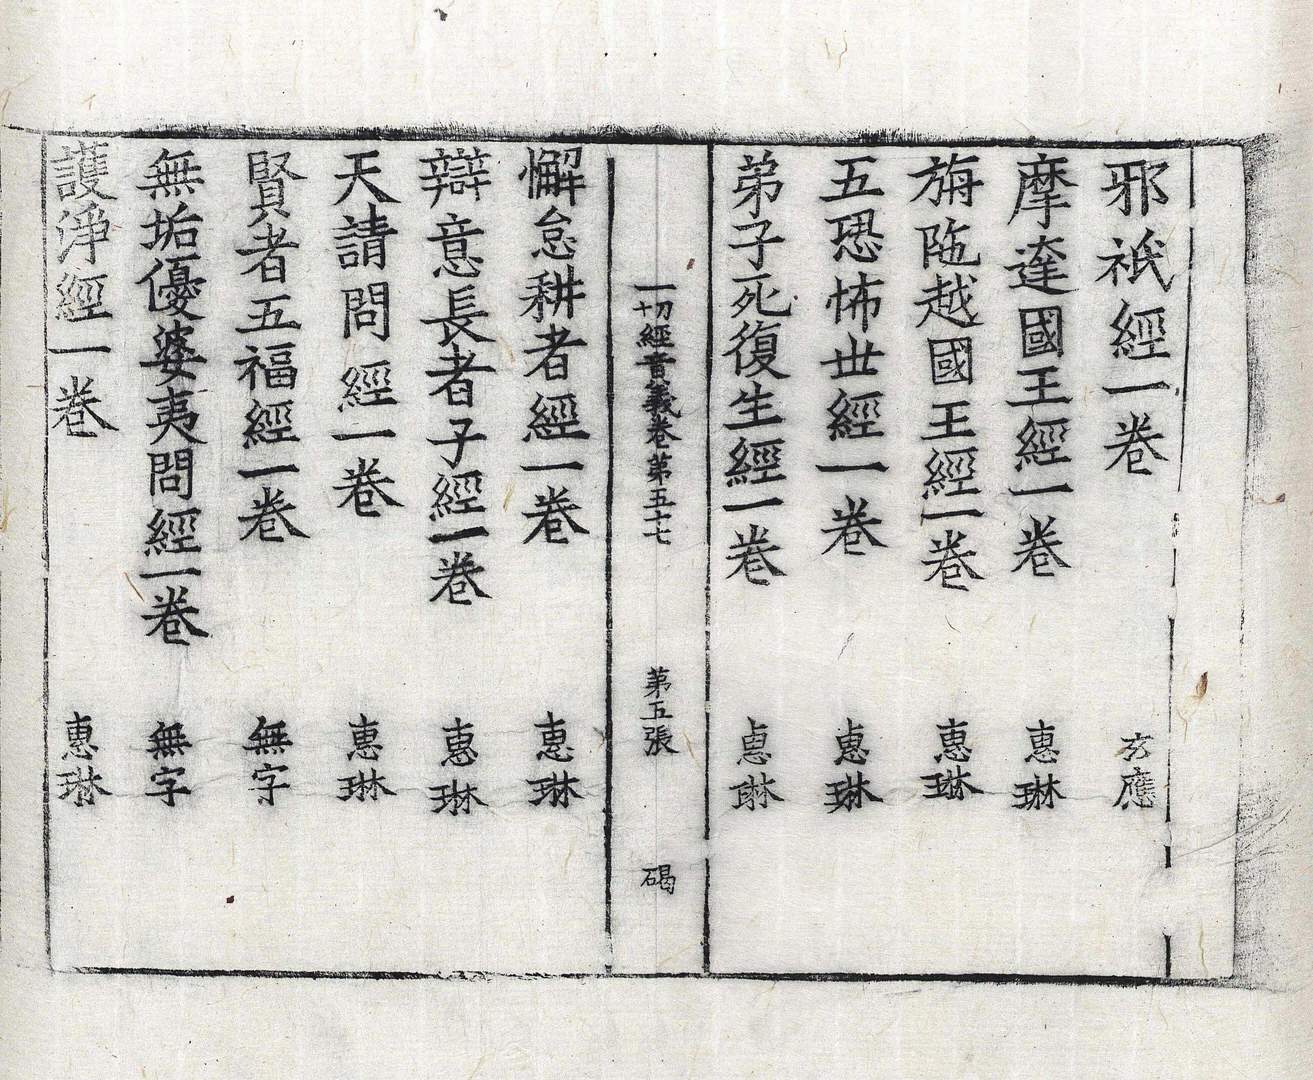 邪祇經一卷 玄應
摩達國王經一卷 惠琳
旃陁越國王經一卷 惠琳
五恐怖世經一卷 惠琳
弟子死復生經一卷 惠琳
一切經音義卷第五十七 第五張 碣
懈怠耕者經一卷 惠琳
辯意長者子經一卷 惠琳
天請問經一卷 惠琳
賢者五福經一卷 無字
無垢優婆夷問經一卷 無字
護淨經一卷 惠琳